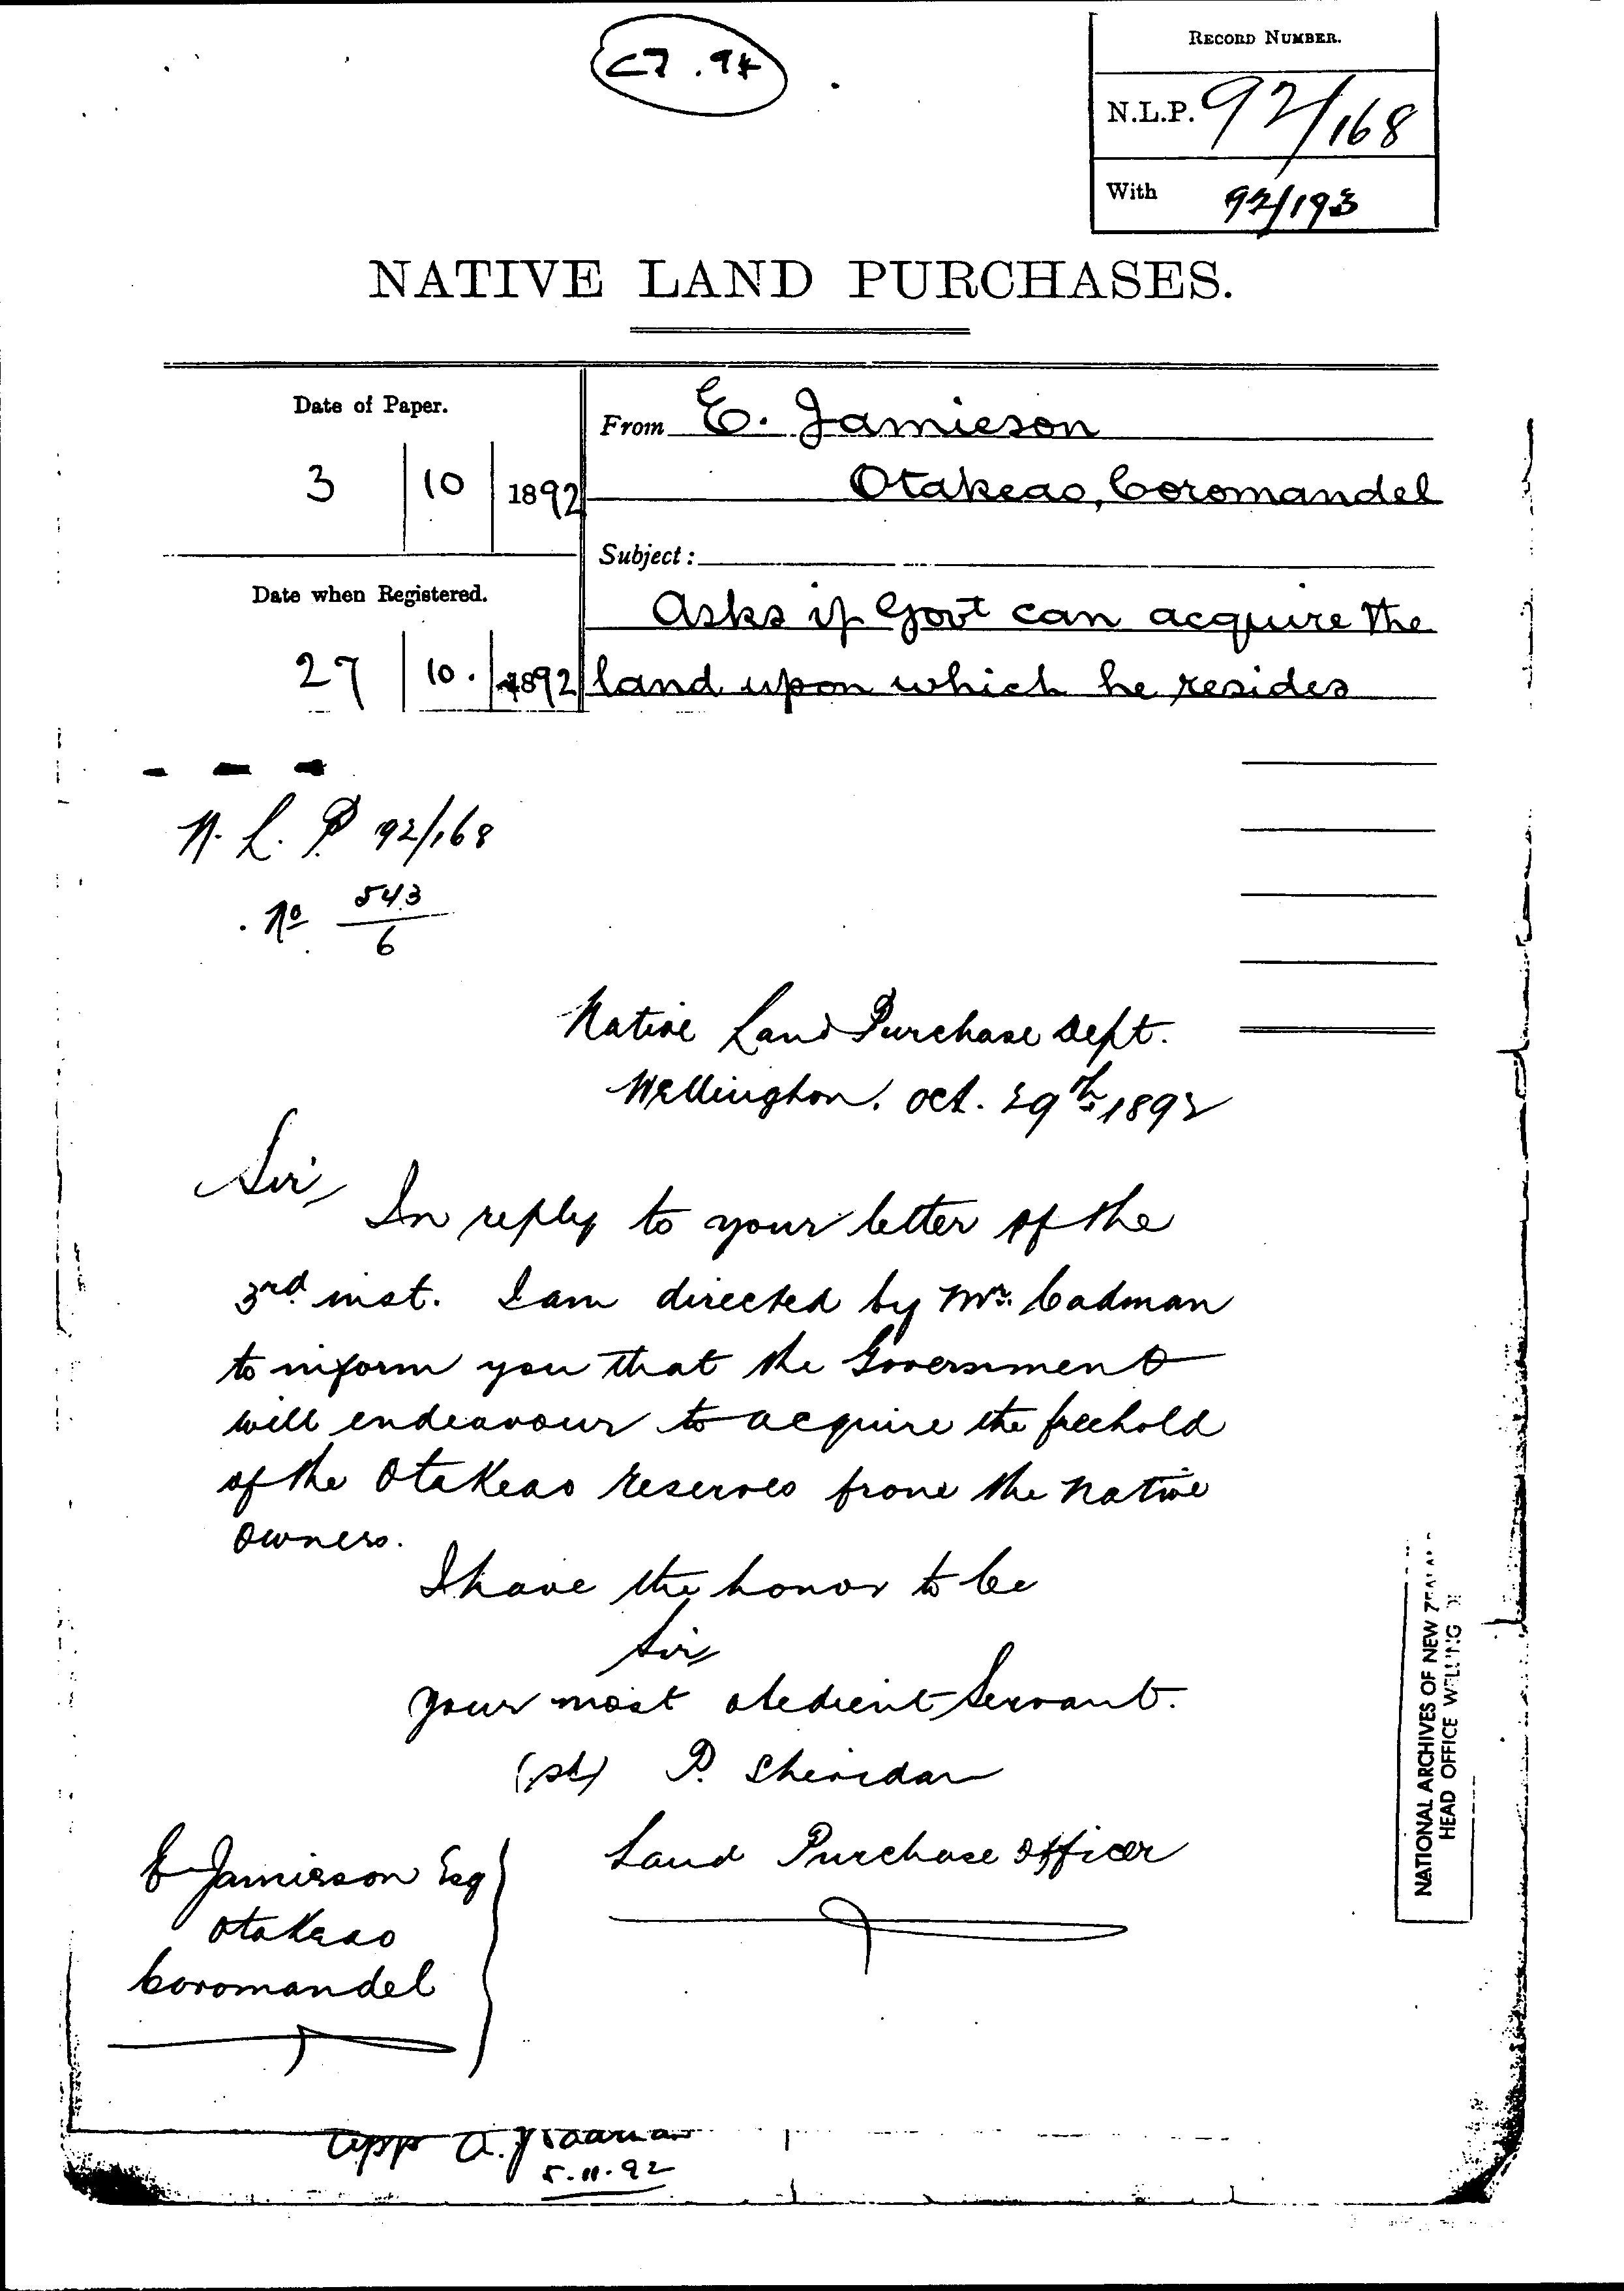 RECORD NUMBER.
N.L.P. 92/168
With 92/193
NATIVE LAND PURCHASES.
Date of Paper.
3 10 1892
From E. Jamieson
Otakeao, Coromandel
Subject:
Date when Registered.
27 10. 1892
Asks if Govt can acquire the
land upon which he resides
N. L. P. 92/168
No 543/6
Native Land Purchase Dept.
Wellington. Oct. 29th 1892
Sir,
In reply to your letter of the
3rd inst. I am directed by Mr. Cadman
to inform you that the Government
will endeavour to acquire the freehold
of the Otakeao reserves from the native
owners.
I have the honor to be
Sir
Your most obedient Servant.
P. Sheridan
Land Purchase Officer
E Jamieson Esq
Otakeao
Coromandel
5.11.92
NATIONAL ARCHIVES OF NEW
HEAD OFFICE